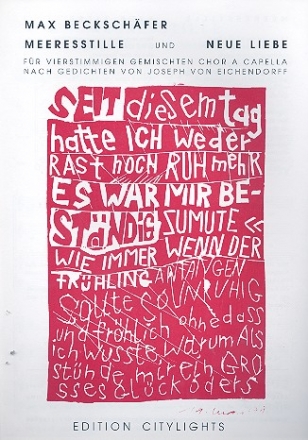 MAX BECKSCHÄFER
MEERESSTILLE UND NEUE LIEBE
FÜR VIERSTIMMIGEN GEMISCHTEN CHOR A CAPELLA
NACH GEDICHTEN VON JOSEPH VON EICHENDORFF
SEIT diesem tag
hatte ICH weder
RAST noch RUH mehR
ES WAR MIR BE-
STÄNDIG ZUMUTE «
WIE IMMER WENN DER
FRÜHLING ANFANGEN
SOLLTE SO UNRUHIG
und fröhlich ohne dass
ich wusste warum Als
stünde mir ein GRO
sses Glück oder s
EDITION CITYLIGHTS